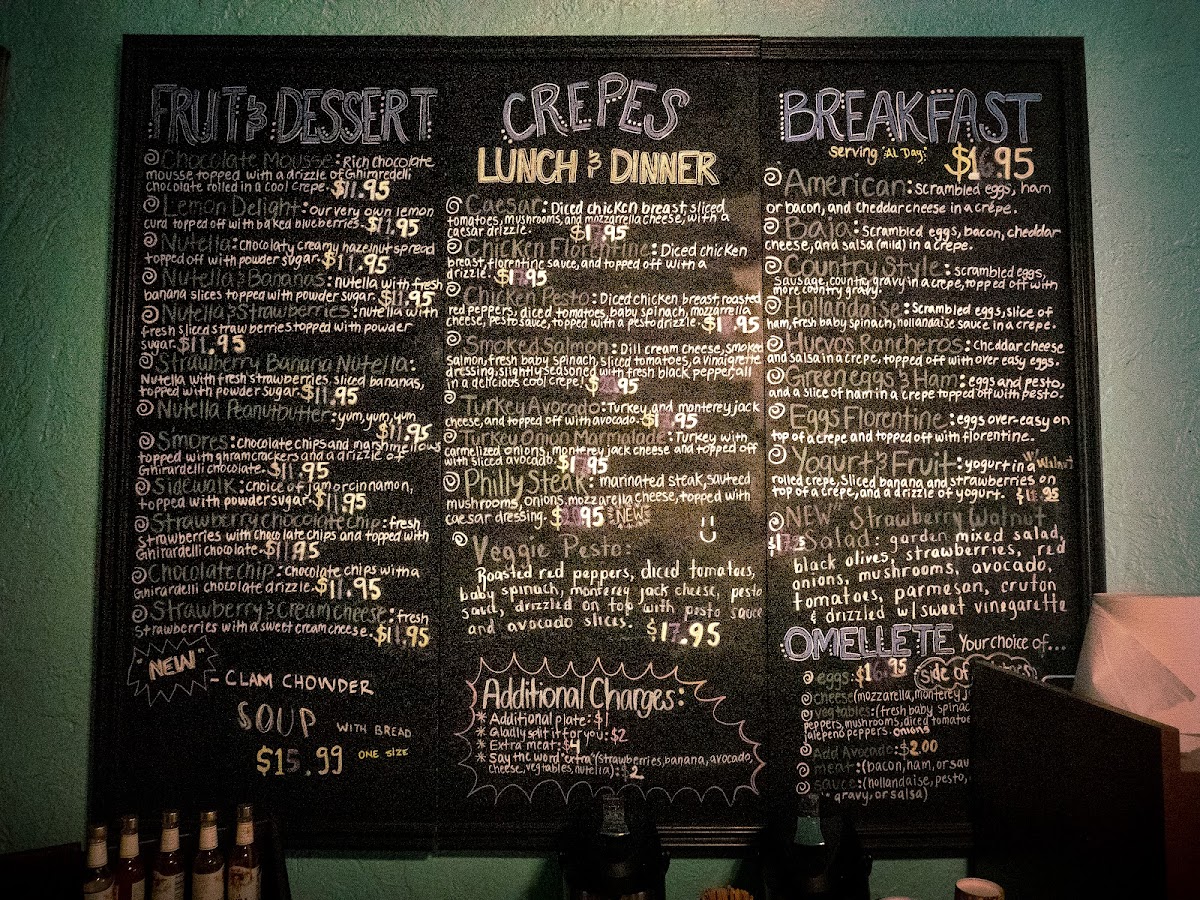 FRUIT & DESSERT
Chocolate Mousse: Rich chocolate
mousse topped with a drizzle of Ghirredelli
chocolate rolled in a cool crepe. $11.95
Lemon Delight: our very own lemon
curd topped off with baked blueberries. $11.95
Nutella: chocolaty creamy hazelnut spread
topped off with powder sugar. $11.95
Nutella & Bananas: nutella with fresh
banana slices topped with powder sugar. $11.95
Nutella & Strawberries: nutella with
fresh sliced strawberries topped with powder
sugar. $11.95
Strawberry Banana Nutella:
Nutella with fresh strawberries, sliced bananas,
topped with powder sugar. $11.95
Nutella Peanutbutter: yum, yum, yum
$11.95
Smores: chocolate chips and marshmellows
topped with ghramcrackers and a drizzle of
Ghirardelli chocolate. $11.95
Sidewalk: choice of jam or cinnamon,
topped with powder sugar. $11.95
Strawberry chocolate chip: fresh
Strawberries with chocolate chips and topped with
Ghirardelli chocolate. $11.95
Chocolate chip: chocolate chips with a
Ghirardelli chocolate drizzle. $11.95
Strawberry & Creamcheese: fresh
strawberries with a sweet cream cheese. $11.95
"NEW"
- CLAM CHOWDER
SOUP WITH BREAD
$15.99 ONE SIZE
CREPES
LUNCH & DINNER
Caesar: Diced chicken breast, sliced
tomatoes, mushrooms, and mozzarrella cheese, with a
caesar drizzle. $17.95
Chicken Florentine: Diced chicken
breast, florentine sauce, and topped off with a
drizzle. $17.95
Chicken Pesto: Diced chicken breast, roasted
red peppers, diced tomatoes, baby spinach, mozzarella
cheese, pesto sauce, topped with a pesto drizzle. $1 .95
Smoked Salmon: Dill cream cheese, smoked
salmon, fresh baby spinach, sliced tomatoes, a vinaigrette
dressing, slightly seasoned with fresh black pepper, all
in a delicious cool crepe! $ .95
Turkey Avocado: Turkey and monterey jack
cheese, and topped off with avocado. $1 .95
Turkey Onion Marmalade: Turkey with
carmelized onions, monterey jack cheese and topped
with sliced avocado. $17.95
Philly Steak: marinated steak, sauteed
mushrooms, onions, mozzarella cheese, topped with
caesar dressing. $ .95 NEW
Veggie Pesto:
Roasted red peppers, diced tomatoes,
baby spinach, monterey jack cheese, pesto
saud, drizzled on top with pesto sauce
and avocado slices. $17.95
Additional Charges:
* Additional plate: $1
* Gladly split it for you: $2
* Extra meat: $4
* Say the word "extra" (strawberries, banana, avocado,
cheese, vegtables, nutella): $2
BREAKFAST
serving "Al Day" $16.95
American: scrambled eggs, ham
or bacon, and cheddar cheese in a crêpe.
Baja: Scrambled eggs, bacon, cheddar
cheese, and salsa (mild) in a crepe.
Country Style: scrambled eggs,
Sausage, country gravy in a crepe, topped off with
more country gravy.
Hollandaise: Scrambled eggs, slice of
ham, fresh baby spinach, hollandaise sauce in a crepe.
Huevos Rancheros: cheddar cheese
and salsa in a crepe, topped off with over easy eggs.
Green eggs & Ham: eggs and pesto,
and a slice of ham in a crepe topped off with pesto.
Eggs Florentine: eggs over-easy on
top of a crepe and topped off with florentine.
Yogurt & Fruit: yogurt in a w/ Walnut
rolled crepe, Sliced banana and strawberries on
top of a crepe, and a drizzle of yogurt.
"NEW" Strawberry Walnut
Salad: garden mixed salad,
black olives, strawberries, red
onions, mushrooms, avocado,
tomatoes, parmeson, cruton
& drizzled w/ sweet vinegarette
OMELLETE Your choice of...
eggs: $16.95 side of
cheese (mozzarella, monterey j
vegtables: (fresh baby spinac
peppers, mushrooms, diced tomatoe
jalepeño peppers. onions
Add Avocado: $2.00
meat: (bacon, ham, or sau
sauce: (hollandaise, pesto,
gravy, or salsa)